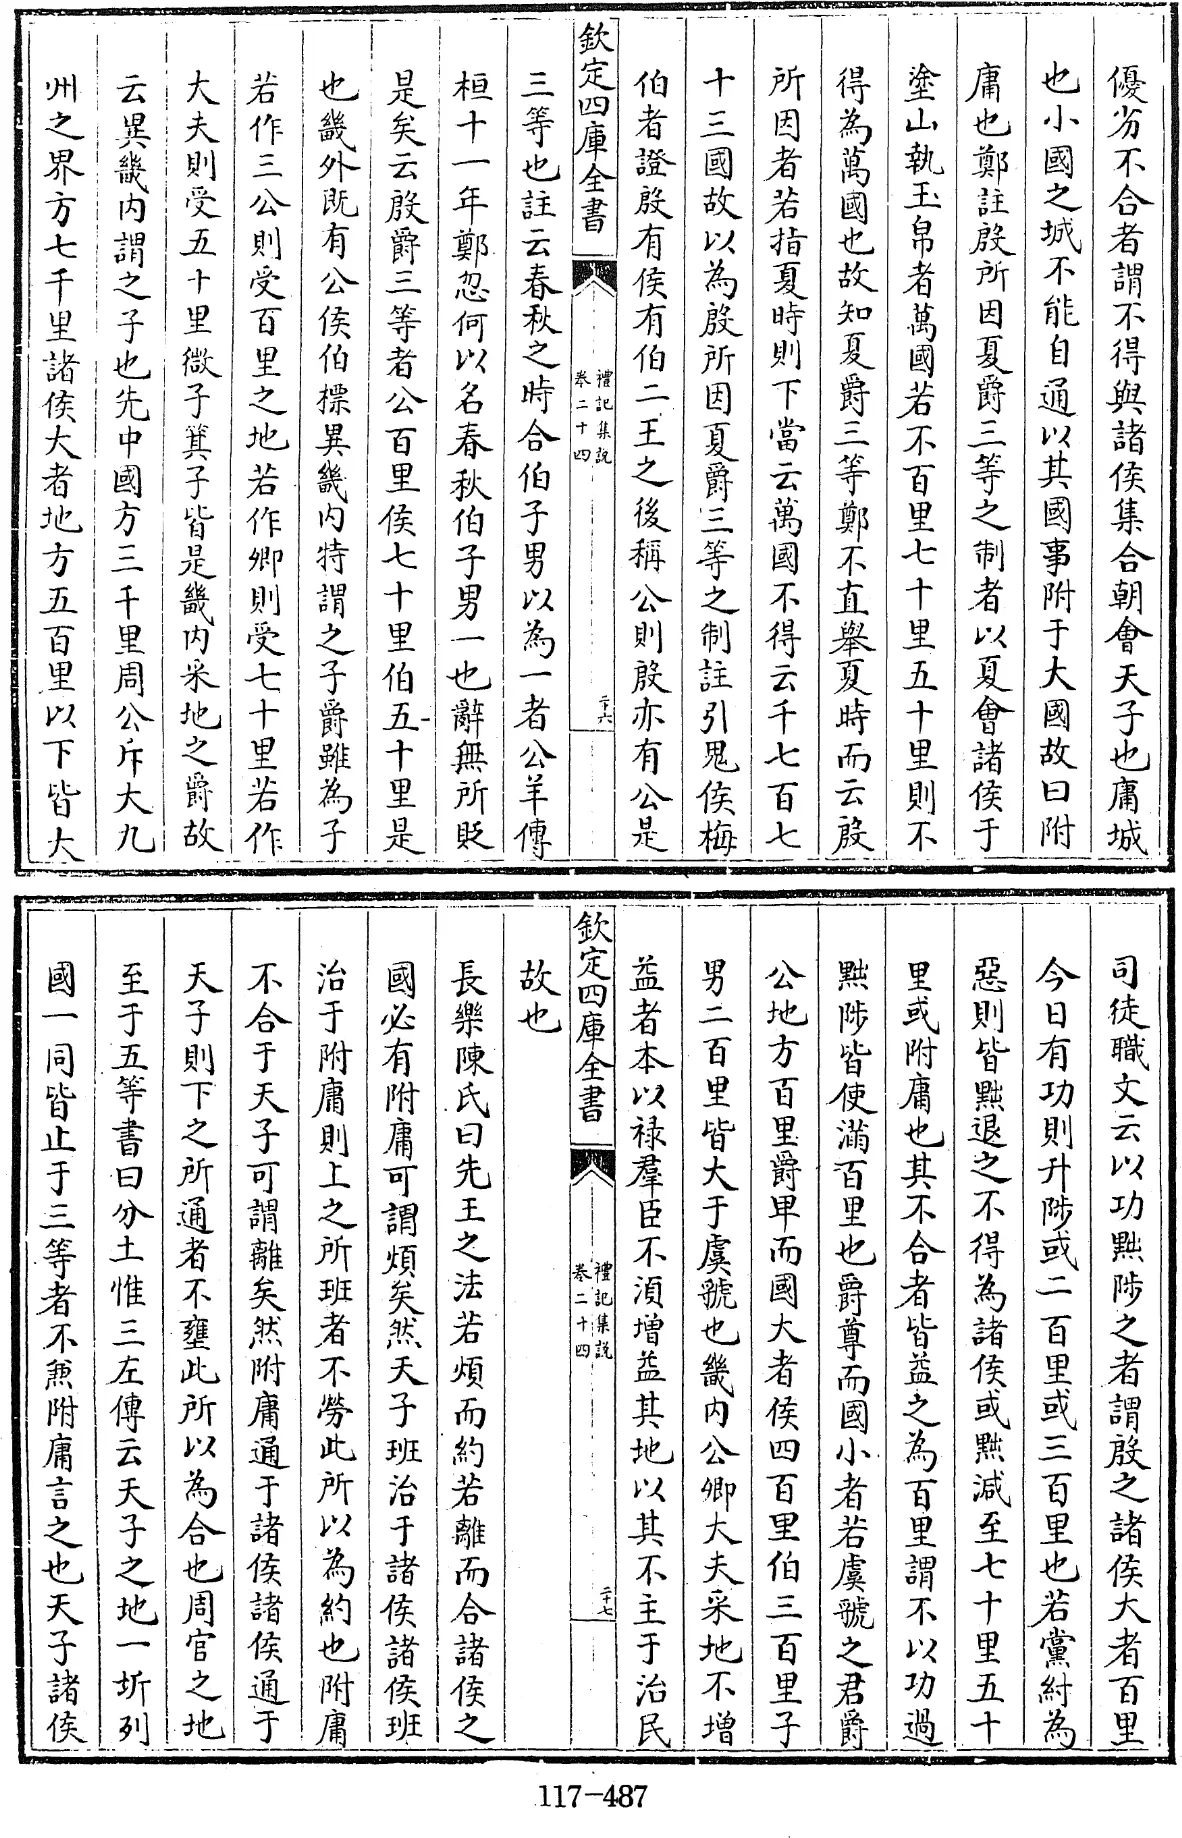 優劣不合者謂不得與諸侯集合朝會天子也庸城
也小國之城不能自通以其國事附于大國故曰附
庸也鄭註殷所因夏爵三等之制者以夏會諸侯于
塗山執玉帛者萬國若不百里七十里五十里則不
得為萬國也故知夏爵三等鄭不直舉夏時而云殷
所因者若指夏時則下當云萬國不得云千七百七
十三國故以為殷所因夏爵三等之制註引鬼侯梅
伯者證殷有侯有伯二王之後稱公則殷亦有公是
欽定四庫全書
禮記集説
卷二十四
二十六
三等也註云春秋之時合伯子男以為一者公羊傳
桓十一年鄭忽何以名春秋伯子男一也辭無所貶
是矣云殷爵三等者公百里侯七十里伯五十里是
也畿外既有公侯伯標異畿内特謂之子爵雖為子
若作三公則受百里之地若作卿則受七十里若作
大夫則受五十里微子箕子皆是畿内采地之爵故
云異畿内謂之子也先中國方三千里周公斥大九
州之界方七千里諸侯大者地方五百里以下皆大
司徒職文云以功黜陟之者謂殷之諸侯大者百里
今日有功則升陟或二百里或三百里也若黨紂為
惡則皆黜退之不得為諸侯或黜減至七十里五十
里或附庸也其不合者皆益之為百里謂不以功過
黜陟皆使滿百里也爵尊而國小者若虞虢之君爵
公地方百里爵卑而國大者侯四百里伯三百里子
男二百里皆大于虞虢也畿内公卿大夫采地不增
益者本以禄羣臣不須增益其地以其不主于治民
欽定四庫全書
禮記集説
卷二十四
二十七
故也
長樂陳氏曰先王之法若煩而約若離而合諸侯之
國必有附庸可謂煩矣然天子班治于諸侯諸侯班
治于附庸則上之所班者不勞此所以為約也附庸
不合于天子可謂離矣然附庸通于諸侯諸侯通于
天子則下之所通者不壅此所以為合也周官之地
至于五等書曰分土惟三左傳云天子之地一圻列
國一同皆止于三等者不兼附庸言之也天子諸侯
117-487